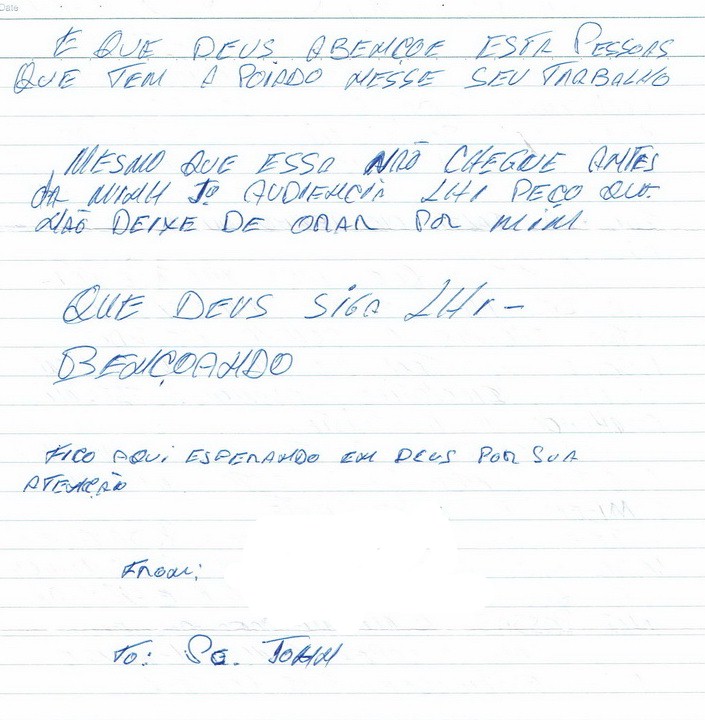 Date
E QUE DEUS ABENÇOE ESTA PESSOAS
QUE TEM A POIADO NESSE SEU TARBALHO
MESMO QUE ESSA NÃO CHEGUE ANTES
DA MINH 1º AUDIENCIA LHI PEÇO QUE
NÃO DEIXE DE ORAR POR MIM
QUE DEUS SIGA LHI-
BENÇOANDO
FICO AQUI ESPERANDO EM DEUS POR SUA
ATENÇÃO
FROM:
TO: PE. JOHN